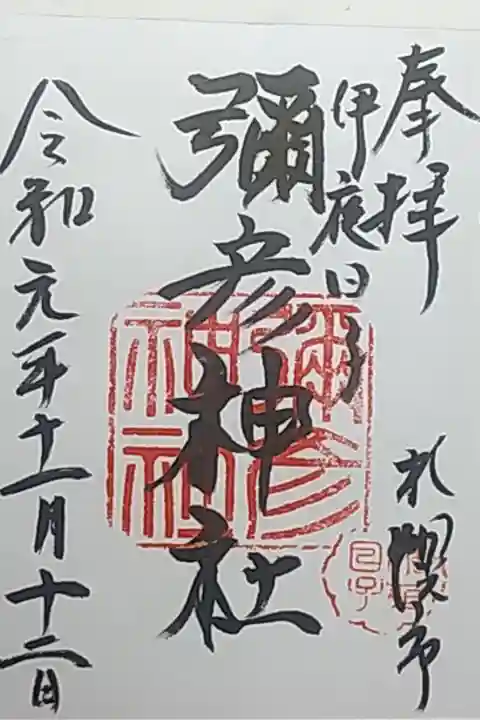 奉拝
札幌市
伊夜日子
彌彦神社
彌彦神社
令和元年十一月十二日